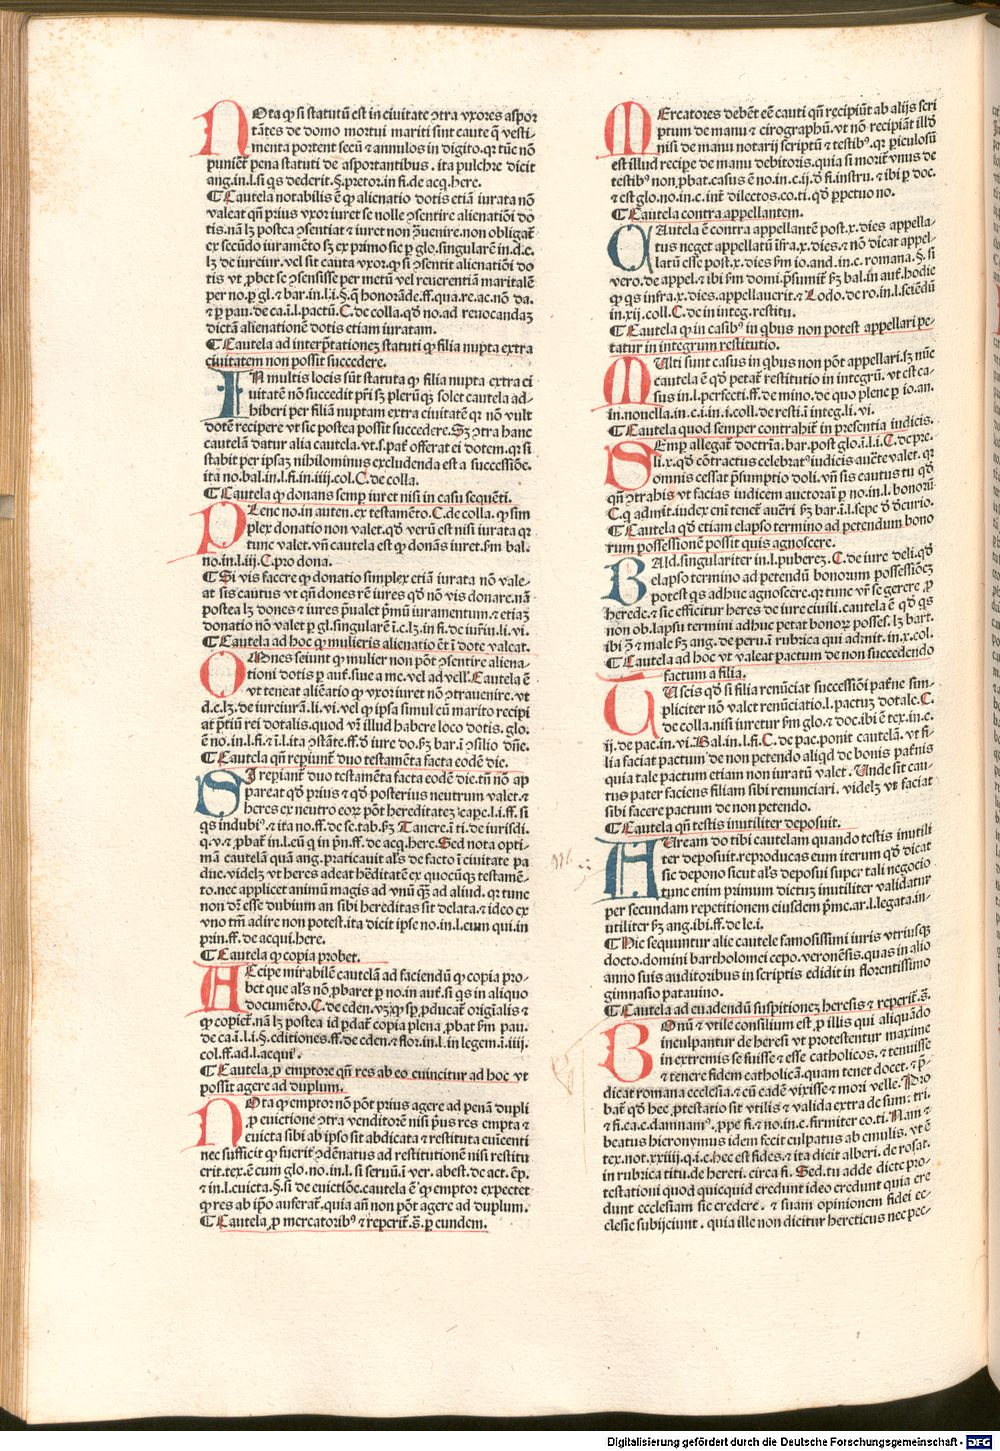 NOta ꝙ si statutū est in ciuitate ꝯtra vxores aspor
tātes de domo mortui mariti sint caute q̄ vesti⸗
menta portent secū ⁊ annulos in digito. qꝛ tūc nō
puniēt̄ pena statuti de asportantibus. ita pulchre dicit
ang. in. l. si qs dederit. §. pretor. in fi. de acq. here.
¶ Cautela notabilis ē ꝙ alienatio dotis etiā iurata nō
valeat qn̄ prius vxor iuret se nolle ꝯsentire alienatiōi do
tis. nā lꝫ postea ꝯsentiat ⁊ iuret non ꝯuenire. non obligat̄
ex secūdo iuramēto sꝫ ex primo sic ꝑ glo. singularē in. d. c.
lꝫ de iureiur. vel sit cauta vxor. ꝙ si ꝯsentit alienatiōi do
tis vt ꝓbet se ꝯsensisse per metū vel reuerentiā maritalē
per no. ꝑ gl. ⁊ bar. in. l. i. §. q̄ honorāde. ff. qua. re. ac. nō da.
⁊ ꝑ pau. de ca. ī. l. pactū. C. de colla. qď no. ad reuocandaꝫ
dictā alienationē dotis etiam iuratam.
¶ Cautela ad interp̄tationeꝫ statuti ꝙ filia nupta extra
ciuitatem non possit succedere.
IN multis locis sūt statuta ꝙ filia nupta extra ci
uitatē nō succedit pr̄i sꝫ plerūqꝫ solet cautela ad⸗
hiberi per filiā nuptam extra ciuitatē qꝛ nō vult
dotē recipere vt sic postea possit succedere. Sꝫ ꝯtra hanc
cautelā datur alia cautela. vt. s. pať offerat ei dotem. qꝛ si
stabit per ipsaꝫ nihilominus excludenda est a successiōe.
ita no. bal. in. l. fi. in. iiij. col. C. de colla.
¶ Cautela ꝙ donans semꝑ iuret nisi in casu sequēti.
PLene no. in auten. ex testamēto. C. de colla. ꝙ sim
plex donatio non valet. qď verū est nisi iurata qꝛ
tunc valet. vn̄ cautela est ꝙ donās iuret. ẜm bal.
no. in. l. iij. C. pro dona.
¶ Si vis facere ꝙ donatio simplex etiā iurata nō vale⸗
at sis cautus vt qn̄ dones rē iures qď nō vis donare. nā
postea lꝫ dones ⁊ iures p̄ualet pʹmū iuramentum. ⁊ etiaꝫ
donatio nō valet ꝑ gl. singularē ī. c. lꝫ. in fi. de iur̄in. li. vi.
¶ Cautela ad hoc ꝙ mulieris alienatio ēt ī dote valeat.
OMnes sciunt ꝙ mulier non pōt ꝯsentire aliena⸗
tioni dotis ꝑ aut̄. siue a me. vel ad vell. Cautela ē
vt teneat aliēatio ꝙ vxor iuret nō ꝯtrauenire. vt
d. c. lꝫ. de iureiurā. li. vi. vel ꝙ ipsa simul cū marito recipi
at p̄tiū rei dotalis. quod vʹi illud habere loco dotis. glo.
ē no. in. l. fi. ⁊ ī. l. ita ꝯstāte. ff. ď iure do. ẜꝫ bar. ī ꝯsilio dn̄e.
¶ Cautela qn̄ repiunť duo testamēta facta eodē die.
SI repianť duo testamēta facta eodē die. tn̄ nō ap
pareat qď prius ⁊ qď posterius neutrum valet. ⁊
heres ex neutro eoꝝ pōt hereditateꝫ cape. l. i. ff. si
qs indubiꝰ. ⁊ ita no. ff. de se. tab. ẜꝫ Tancre. ī ti. de iurisdi.
q. v. ⁊ ꝓbať in. l. cū q in p̄n. ff. de acq. here. Sed nota opti⸗
mā cautelā quā ang. praticauit alʹs de facto ī ciuitate pa
due. videlꝫ vt heres adeat hēditatē ex quocūqꝫ testamē⸗
to. nec applicet animū magis ad vnū qꝫ ad aliud. qꝛ tunc
non dʒ esse dubium an sibi hereditas sit delata. ⁊ ideo ex
vno tm̄ adire non potest. ita dicit ipse no. in. l. eum qui. in
prin. ff. de acqui. here.
¶ Cautela ꝙ copia probet.
ACcipe mirabilē cautelā ad faciendū ꝙ copia pro⸗
bet que alʹs nō ꝓbaret ꝑ no. in aut̄. si qs in aliquo
documēto. C. de eden. vꝫ. ꝙ sꝑ ꝓducať origīalis ⁊
ꝙ copieť. nā lꝫ postea id ꝑdať copia plena ꝓbat ẜm pau.
de ca. ī. l. i. §. editiones. ff. de eden. ⁊ flor. in. l. in legem. ī. iiij.
col. ff. ad. l. acquiʹ.
¶ Cautela ꝓ emptore qn̄ res ab eo euincitur ad hoc vt
possit agere ad duplum.
NOta ꝙ emptor nō pōt prius agere ad penā dupli
ꝓ euictione ꝯtra venditorē nisi pʹus res empta ⁊
euicta sibi ab ipso sit abdicata ⁊ restituta euīcenti
nec sufficit ꝙ fueriť ꝯdēnatus ad restitutionē nisi restitu
erit. tex. ē cum glo. no. in. l. si seruū. ī ver. abest. de act. ēp.
⁊ in. l. euicta. §. si de euictiōe. cautela ē ꝙ emptor expectet
ꝙ res ab ipo auferať. quia an̄ non pōt agere ad duplum.
¶ Cautela ꝓ mercatoribꝰ ⁊ reperiť. §. ꝑ eundem.
MErcatores debēt eē cauti qn̄ recipiūt ab alijs scri
ptum de manu ⁊ cirographū. vt nō recipiāt illď
nisi de manu notarij scriptū ⁊ testibꝰ. qꝛ ꝑiculosū
est illud recipe de manu debitoris. quia si moriť vnus de
testibꝰ non ꝓbat. casus ē no. in c. ij. ď fi. instru. ⁊ ibi ꝑ doc.
⁊ est glo. no. in. c. inť dilectos. eo. ti. qď ꝑpetuo no.
¶ Cautela contra appellantem.
CAutela ē contra appellantē post. x. dies appella⸗
tus neget appellatū īfra. x. dies. ⁊ nō dicat appel⸗
latū esse post. x. dies ẜm io. and. in c. romana. §. si
vero. de appel. ⁊ ibi ẜm domi. p̄sumiť ẜꝫ bal. in aut̄. hodie
ꝙ qs infra. x. dies. appellauerit. ⁊ Lodo. de ro. in. l. sciēdū
in. xij. coll. C. de in integ. restitu.
¶ Cautela ꝙ in casibꝰ in qbus non potest appellari pe⸗
tatur in integrum restitutio.
MUlti sunt casus in qbus non pōt appellari. lꝫ nūc
cautela ē qď petať restitutio in integrū. vt est ca⸗
sus in. l. perfecti. ff. de mino. de quo plene ꝑ io. an.
in. nouella. in. c. i. in. i. coll. de resti. ī integ. li. vi.
¶ Cautela quod semper contrahiť in presentia iudicis.
SEmꝑ allegať doctrīa. bar. post glo. ī. l. i. C. de pre.
li. x. qď cōtractus celebratꝰ iudicis auctē valet. qꝛ
omnis cessat p̄sumptio doli. vn̄ sis cautus tu qď
qn̄ ꝯtrahis vt facias iudicem auctorari ꝑ no. in. l. bonorū
C. q admit. index cm̄ teneť aucri ẜꝫ bar. ī. l. sepe ď ďcurio.
¶ Cautela qď etiam elapso termino ad petendum bono
rum possessionē possit quis agnoscere.
BAld. singulariter in. l. pubereꝫ. C. de iure deli. qď
elapso termino ad petendū bonorum possessiōeꝫ
potest qs adhuc agnoscere. qꝛ tunc vrʹ se gerere ꝓ
herede. ⁊ sic efficitur heres de iure ciuili. cautela ē qď qs
non ob. lapsu termini adhuc petat bonoꝝ posses. lꝫ bart.
ibi ꝯʹ ⁊ male ẜꝫ ang. de peru. ī rubrica qui admit. in. x. col.
¶ Cautela ad hoc vt valeat pactum de non succedendo
factum a filia.
TU scis qď si filia renūciat successiōi patʹne sim⸗
pliciter nō valet renūciatio. l. pactuꝫ dotale. C.
de colla. nisi iuretur ẜm glo. ⁊ doc. ibi ē tex. in. c.
ij. de pac. in. vi. Bal. in. l. fi. C. de pac. ponit cautelā. vt fi⸗
lia faciat pactum de non petendo aliqd de bonis patʹnis
quia tale pactum etiam non iuratū valet. Unde sit cau⸗
tus pater faciens filiam sibi renunciari. videlꝫ vt faciat
sibi facere pactum de non petendo.
¶ Cautela qn̄ testis inutiliter deposuit.
AUream do tibi cautelam quando testis inutili
ter deposuit. reproducas eum iterum qď dicat
sic depono sicut alʹs deposui super tali negocio
tunc enim primum dictuꝫ inutiliter validatur
per secundam repetitionem eiusdem pʹme. ar. l. legata. in⸗
utiliter ẜꝫ ang. ibi. ff. de le. i.
¶ Hic sequuntur alie cautele famosissimi iuris vtriusqꝫ
docto. domini bartholomei cepo. veronēsis. quas in alio
anno suis auditoribus in scriptis edidit in florentissimo
gimnasio patauino.
¶ Cautela ad euadendū suspitioneꝫ heresis ⁊ reperiť. §.
BOnū ⁊ vtile consilium est ꝓ illis qui aliquādo
inculpantur de heresi vt protestentur maxime
in extremis se fuisse ⁊ esse catholicos. ⁊ tenuisse
⁊ tenere fidem catholicā. quam tenet docet. ⁊ p̄⸗
dicat romana ecclesia. ⁊ cū eadē vixisse ⁊ mori velle. Pro
bať qď hec ꝓtestatio sit vtilis ⁊ valida extra de sum. tri.
⁊ fi. ca. c. damnamꝰ. ꝓpe fi. ⁊ no. in. c. firmiter eo. ti. Nam ⁊
beatus hieronymus idem fecit culpatus ab emulis. vt ē
tex. not. xxiiij. q. i. c. hec est fides. ⁊ ita dicit alberi. de rosat.
in rubrica titu. de hereti. circa fi. Sed. tu adde dicte pro⸗
testationi quod quicquid credunt ideo credunt quia cre
dunt ecclesiam sic credere. ⁊ suam opinionem fidei ec⸗
clesie subijciunt. quia ille non dicitur hereticus nec pec⸗
Digitalisierung gefördert durch die Deutsche Forschungsgemeinschaft - DFG